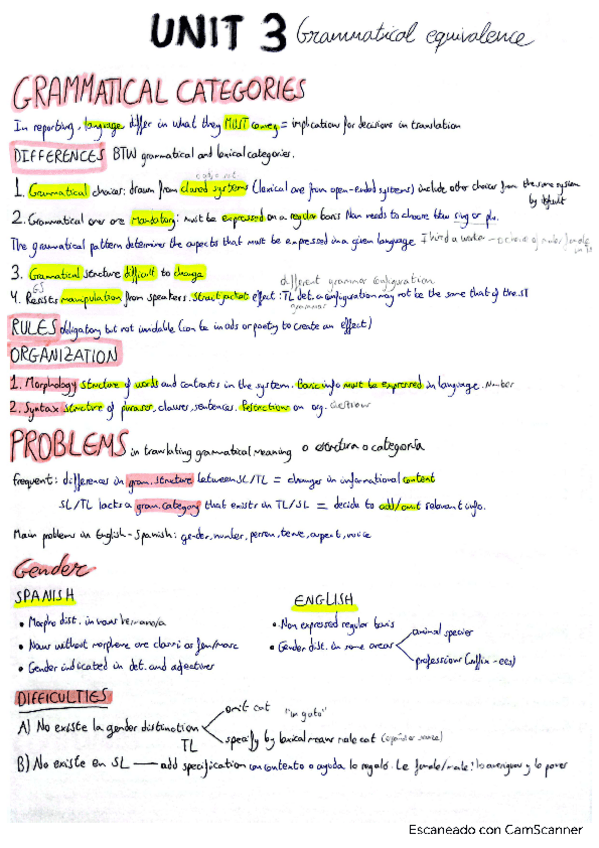 UNIT 3 Grammatical equivalence
GRAMMATICAL CATEGORIES
In reporting, language differ in what they MUST convey = implication for decisions in translation
DIFFERENCES BTW grammatical and lexical categories.
1. Grammatical choices: drawn from closed systems (lexical are from open-ended systems) include other choices from the same system
by default
2. Grammatical ones are Mandatory: must be expressed on a regular basis Noun needs to choose btw sing or plu.
The grammatical pattern determines the aspects that must be expressed in a given language. I hired a worker
3. Grammatical structure difficult to change
different grammar configuration
4. Resists manipulation from speakers. Straitjacket effect: TL det. a configuration may not be the same that of the ST
grammar
RULES obligatory but not inviolable (can be in ads or poetry to create an effect)
ORGANIZATION
1. Morphology structure of words and contrasts in the system. Basic info must be expressed in language. Number
2. Syntax structure of phrases, clauses, sentences. Restrictions on org.
PROBLEMS in translating grammatical meaning o estructura o categoría
Frequent: differences in gram. structure between SL/TL = changes in informational content
SL/TL lacks a gram. category that exists in TL/SL = decide to add/omit relevant info.
Main problems in English-Spanish: gender, number, person, tense, aspect, voice
Gender
SPANISH
ENGLISH
• Morpho dist. in nouns hermano/a
• Non expressed regular basis
• Nouns without morpheme are classif as fem/masc
• Gender dist. in some areas
animal species
• Gender indicated in det. and adjectives
professions (suffix -ess)
DIFFICULTIES
A) No existe la gender distinction
TL
omit cat "un gato"
specify by lexical means male cat
B) No existe en SL — add specification con contexto o ayuda lo regaló. Le female/male? lo averiguas y lo pones
Escaneado con CamScanner